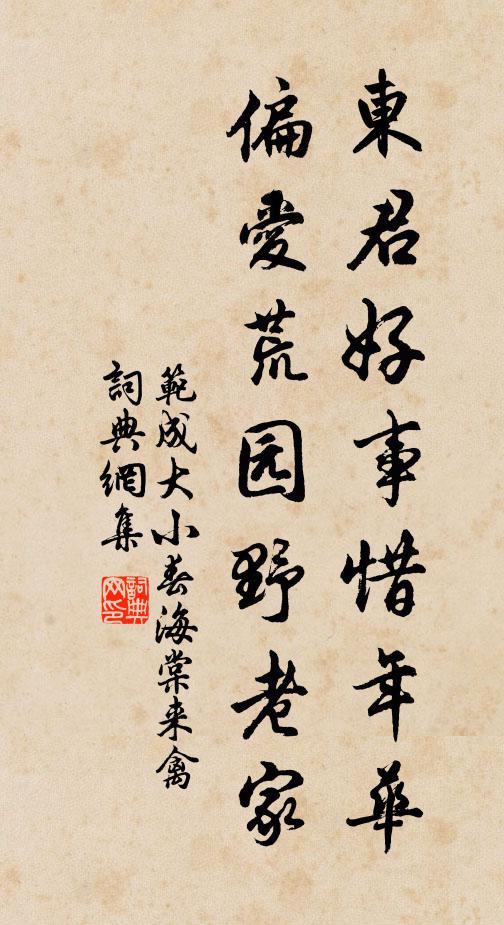 東君好事惜年華
偏愛荒园野老家
範成大小春海棠来禽
詞典網集
詞典
网印